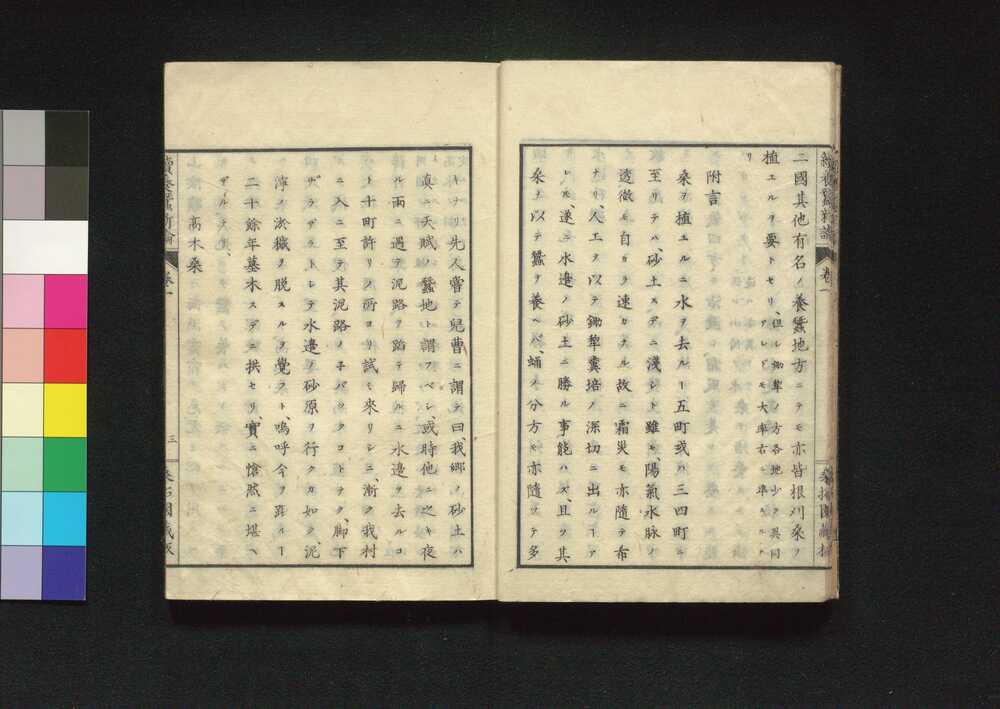 二國其他有名ノ養蠶地方ニテモ亦皆根刈桑ノ
植エルヲ要トセリ、但シ鋤犁ノ方各地少ク異同アレドモ大率右ニ準ゼルナリ
附言
桑ヲ植エルニ水ヲ去ルヿ五町或ハ三四町ニ
至リテハ、砂土スデニ淺シト雖モ、陽氣水脉ノ
透徹モ自カラ速カナル故ニ霜災モ亦隨テ布
ナリ、人工ヲ以テ鋤犁糞培ノ深切ニ出ルヿア
レバ、遂ニ水邊ノ砂土ニ勝ル事能ハズ、且ツ其
桑ヲ以テ蠶ヲ養ヘバ、蛹ノ分方モ亦隨ツテ多
キナリ先人嘗テ兒曹ニ謂テ曰、我郷ノ砂土ハ
眞ニ天賦ノ蠶地ト謂フベシ、或時他ニ之キ夜
ル雨ニ遇テ泥路ヲ蹈テ歸ルニ水邊ヲ去ルコ
ト十町許リノ所ヨリ試ミ來リシニ、漸ク我村
ニ入ニ至テ其泥路ノ子バツクコトナク、脚下
ザラザラトシテ水邊ノ砂原ヲ行クカ如ク、泥
濘ノ汰穢ヲ脱スルヲ覺フト、嗚呼今ヲ距ルヿ
二十餘年墓木スデニ拱セリ、實ニ愴然ニ堪ヘ
ザルナリ、
高木桑
卷一
三